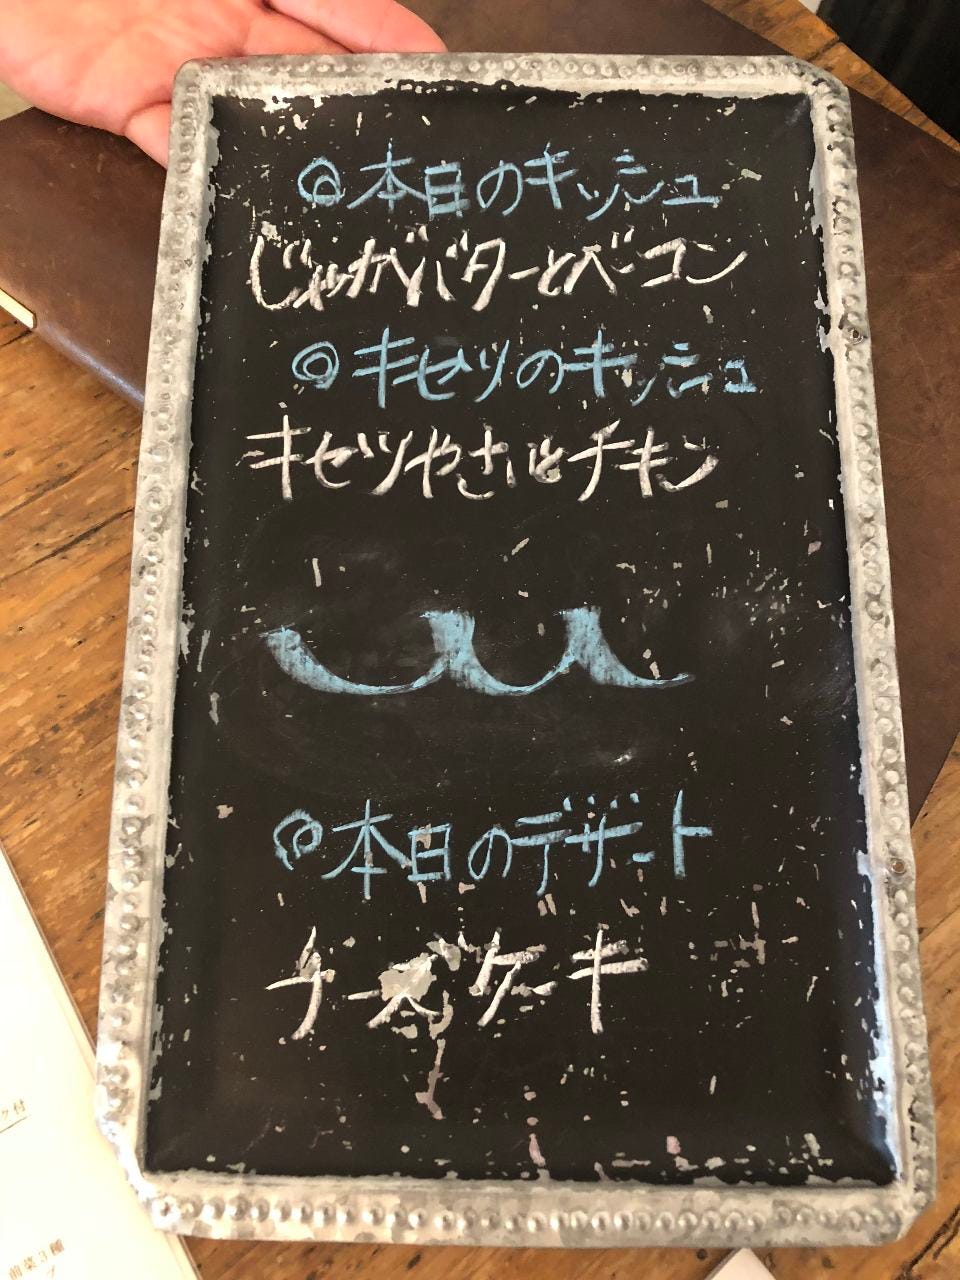 ◎本日のキッシュ
じゃがバターとベーコン
◎キセツのキッシュ
キセツやさいとチキン
◎本日のデザート
チーズケーキ
ク付
前菜3種